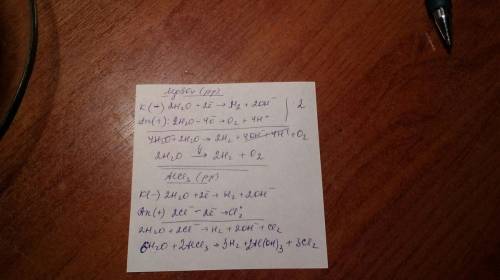 MgSO₄ (рр)
K(-) 2H₂O + 2ē → H₂ + 2OH⁻ | 2
An(+): 2H₂O - 4ē → O₂ + 4H⁺
4H₂O + 2H₂O → 2H₂ + 4OH⁻ + 4H⁺ + O₂
2H₂O → 2H₂ + O₂
AlCl₃ (рр)
K(-) 2H₂O + 2ē → H₂ + 2OH⁻
An(+) 2Cl⁻ - 2ē → Cl₂⁰
2H₂O + 2Cl⁻ → H₂ + 2OH⁻ + Cl₂
6H₂O + 2AlCl₃ → 3H₂ + 2Al(OH)₃ + 3Cl₂